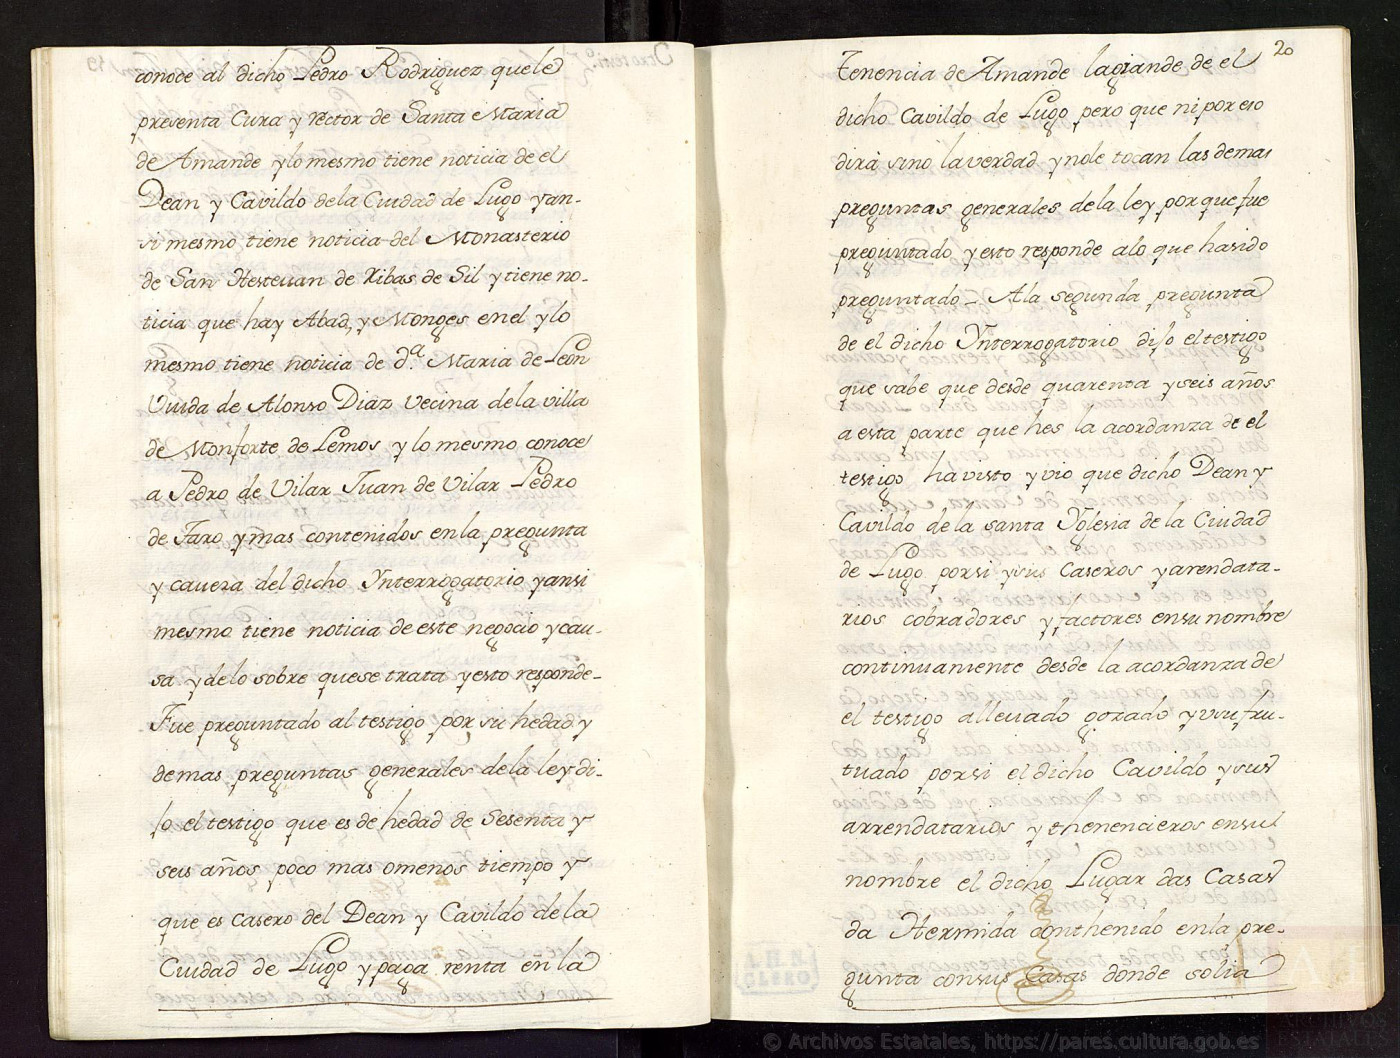 conoce al dicho Pedro Rodriguez quele
presenta Cura y rector de Santa Maria
de Amande ylo mesmo tiene noticia de el
Dean y Cavildo dela Ciudad de Lugo yan-
si mesmo tiene noticia del Monasterio
de San Hestevan de Ribas de Sil ytiene no-
ticia que hay Abad, y Monges enel ylo
mesmo tiene noticia de dª. Maria de Leon
Viuda de Alonso Diaz Vecina dela villa
de Monforte de Lemos y lo mesmo conoce
a Pedro de Vilar Juan de Vilar Pedro
de Faro ymas contenidos enla pregunta
y caveza del dicho Ynterrogatorio yansi
mesmo tiene noticia de este negocio ycau-
sa ydelo sobre quese trata yesto responde-
Fue preguntado al testigo por su hedad y
demas preguntas generales dela ley di-
jo el testigo que es de hedad de Sesenta y
seis años poco mas omenos tiempo y
que es casero del Dean y Cavildo dela
Ciudad de Lugo ypaga renta en la
20
tenencia de Amande lagrande de el
dicho Cavildo de Lugo pero que niporeso
dirà sinò laverdad ynole tocan las demas
preguntas generales dela ley porquefue
preguntado yesto responde alo que hasido
preguntado- Ala segunda pregunta
de el dicho Ynterrogatorio dijo eltestigo
que save que desde quarenta yseis años
a esta parte que hes la acordanza de el
testigo havisto yvio que dicho Dean y
Cavildo dela santa Yglesia de la Ciudad
de Lugo porsi ysus Caseros yarendata-
rios cobradores y factores ensu nombre
continuamente desde la acordanza de
el testigo allevado gozado yvsufru-
tuado porsi el dicho Cavildo ysus
arrendatarios y thenencieros ensu
nombre el dicho Lugar das Casas
da Hermida conthenido enla pre-
gunta consus Casas donde solia
A.H.N.
CLERO
© Archivos Estatales, https://pares.cultura.gob.es